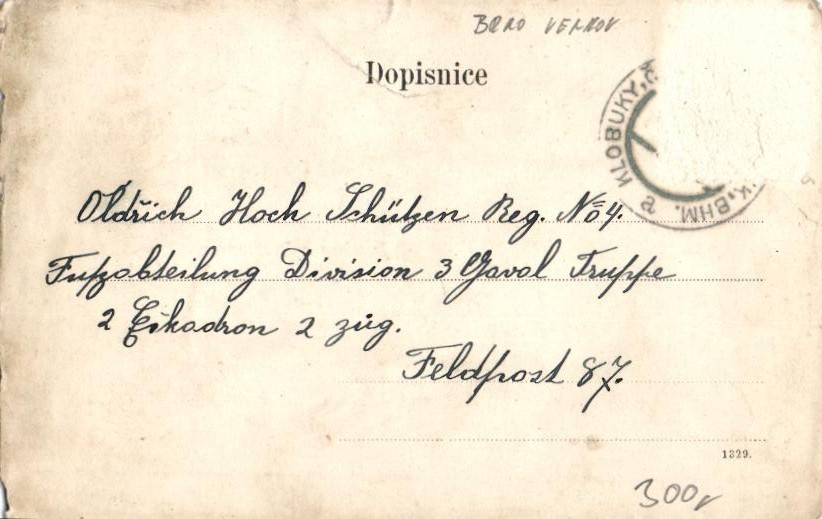 BRNO VENKOV
Dopisnice
KLOBUKY, Č
K, BHM. a
Oldřich Hoch Schützen Reg. No 4.
Fußabteilung Division 3 Gavol Truppe
2 Eskadron 2 zug.
Feldpost 87.
1329.
300,